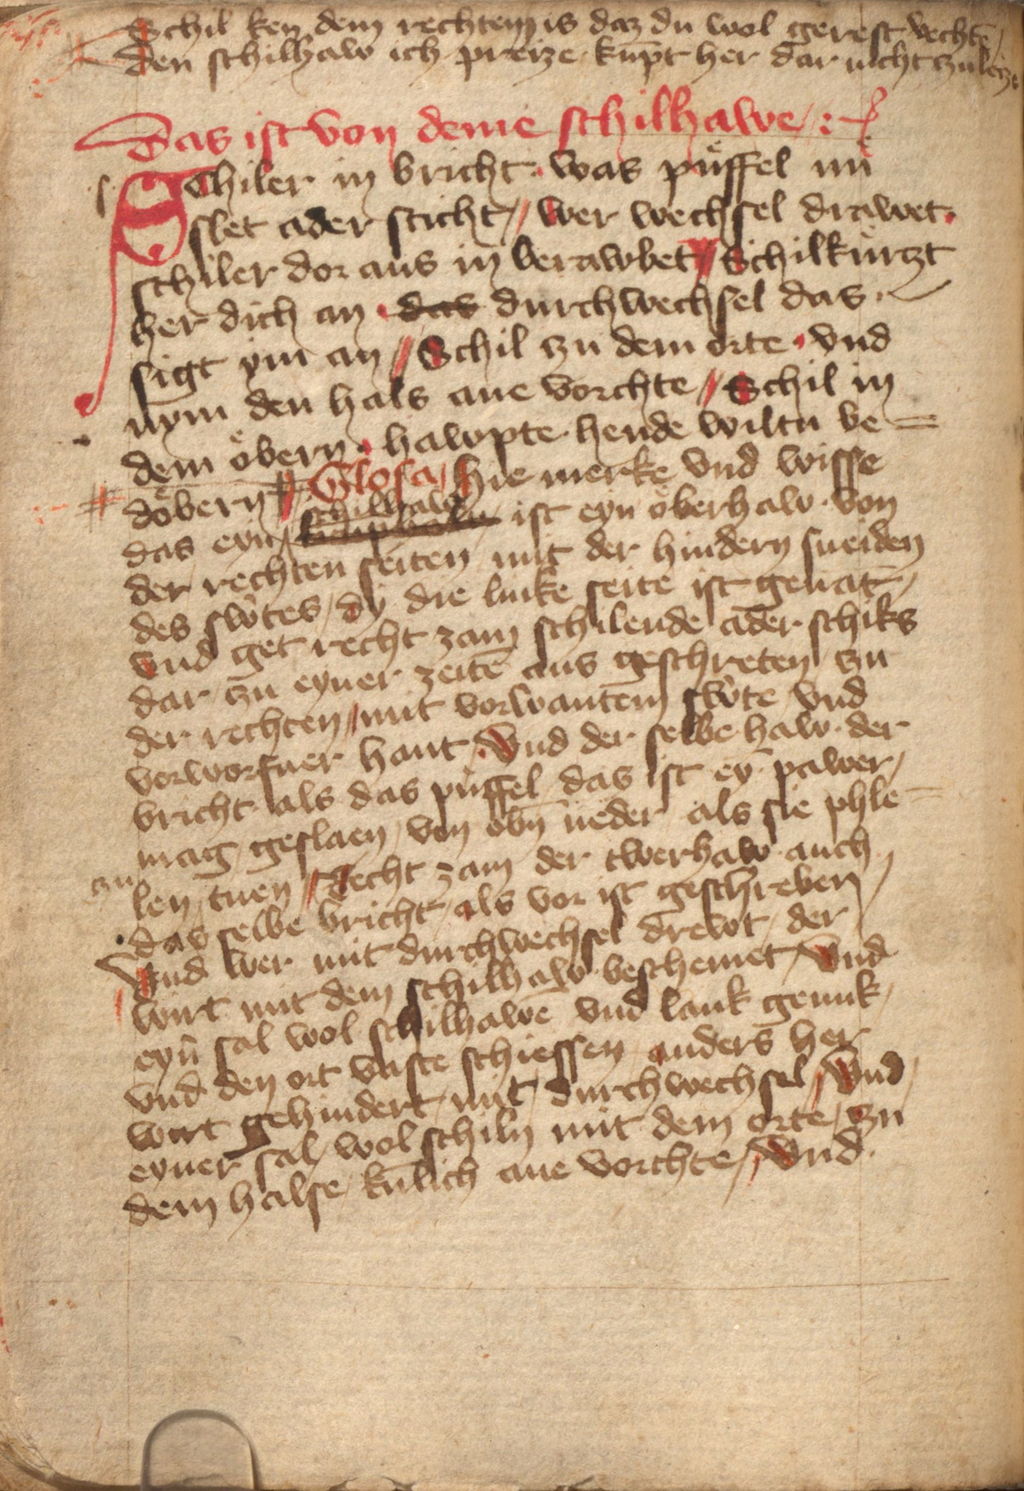 Schil ken dem rechten is daz du wol gerest vechtē
den schilhaw ich preize kūpt her dar nicht zu leize
Das ist von deme schilhawe
Schiler in bricht was püffel nü
slet ader sticht wer wechsel drawet
schiler dor aus in berawbet Schil kürtzt
her dich an das durchwechsel das
sigt ym an Schil zu dem orte vnd
nym den hals ane vorchte Schil in
dem öbern hawpte hende wiltu be=
döbern Glosa hie merke vnd wisse
das eyn schilhaw ist eyn öberhaw von
der rechten seiten mit der hindern sneiden
des sw̄tes dy die linke seite ist genāt
vnd get recht zam schilende ader schiks
dar zu eyner zeitē aus geschreten zu
der rechten mit vorwantem sw̄te vnd
vorworfner hant Vnd der selbe haw der
bricht als das püffel das ist ey̅ pawer
mag geslaen von obn̄ neder als sie phle=
zu
len tuen Recht zam der twerhaw auch
das selbe bricht als vor ist geschreben
Vnd wer mit durchwechsel drewt der
wirt mit dem schilhaw beschemet Vnd
eyn̄ sal wol schilhawē vnd lank genuk
vnd den ort vaste schiessen anders her
wirt gehindert mit durchwechsel Vnd
eyner sal wol schiln mit dem orte zu
dem halse kūlich ane vorchte Vnd